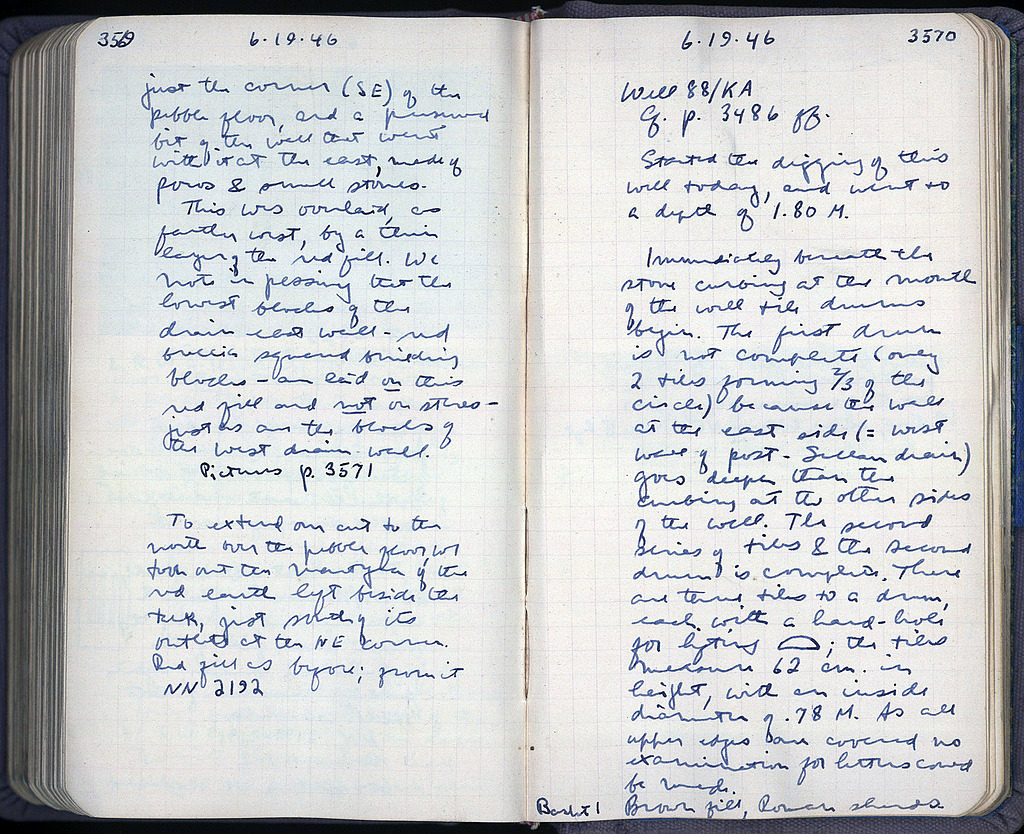 3569
6·19·46
just the corner (SE) of the
pebble floor, and a preserved
bit of the wall that went
with it at the east, made of
poros & small stones.
This was overlaid, as
farther west, by a thin
layer of the red fill. We
note in passing that the
lowest blocks of the
drain east wall - red
breccia squared building
blocks - are laid on this
red fill and not on stereo -
just as are the blocks of
the west drain wall.
Pictures p. 3571
To extend our cut to the
north over the pebble floor, we
took out the of the
red earth left beside the
just south of its
outlet at the NE corner.
Red fill as before; from it
NN 2192
6·19·46
3570
Well 88/KA
Cf. p. 3486 ff.
Started the digging of this
well today, and went to
a depth of 1.80 M.
Immediately beneath the
stone curbing at the mouth
of the well tile drums
begin. The first drum
is not complete (only
2 tiles forming 2/3 of the
circle) because the wall
at the east side (= west
wall of post-Sullan drain)
goes deeper than the
curbing at the other sides
of the well. The second
series of tiles & the second
drum is complete. There
are three tiles to a drum,
each with a hand-hole
for lifting ; the tiles
measure 62 cm. in
height, with an inside
diameter of .78 M. As all
upper edges are covered no
examination for letters could
be made.
Basket 1 Brown fill, Roman sherds